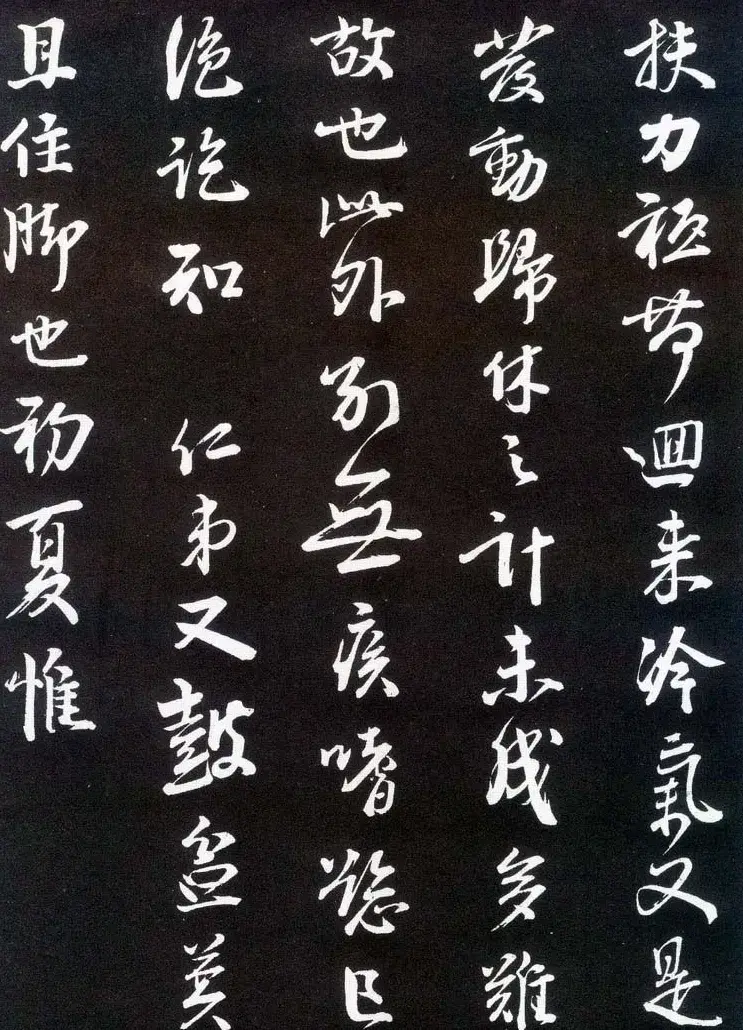 扶力祗迴来冷氣又是
發動歸休之計未成多難
故也此外別無疾嗜慾已
絶訖知 仁弟又鼓盆莫
且住脚也初夏惟